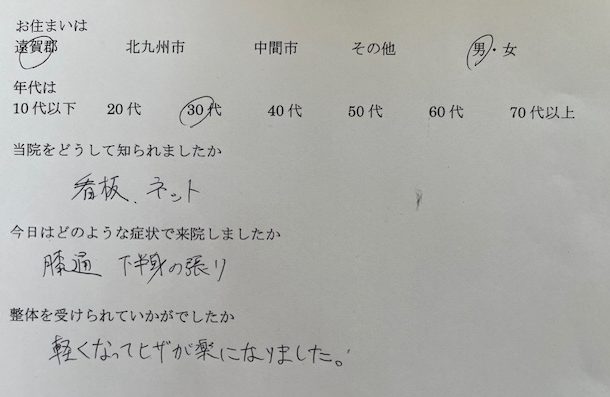 お住まいは
遠賀郡 北九州市 中間市 その他 男・女
年代は
10代以下 20代 30代 40代 50代 60代 70代以上
当院をどうして知られましたか
看板、ネット
今日はどのような症状で来院しましたか
膝通 下半身の張り
整体を受けられていかがでしたか
軽くなってヒザが楽になりました。